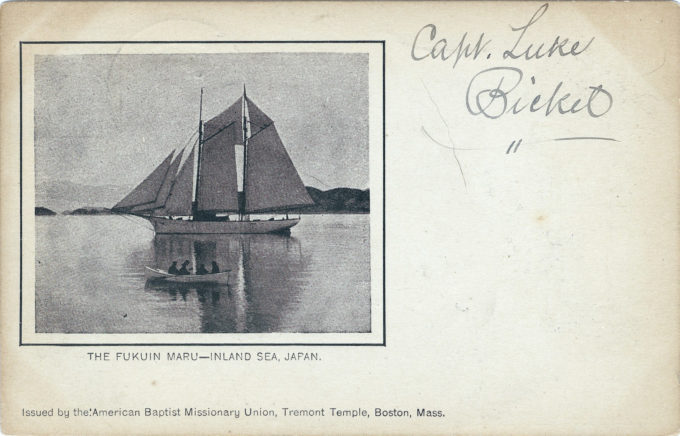 Capt. Luke
Bickel
"
THE FUKUIN MARU—INLAND SEA, JAPAN.
Issued by the American Baptist Missionary Union, Tremont Temple, Boston, Mass.